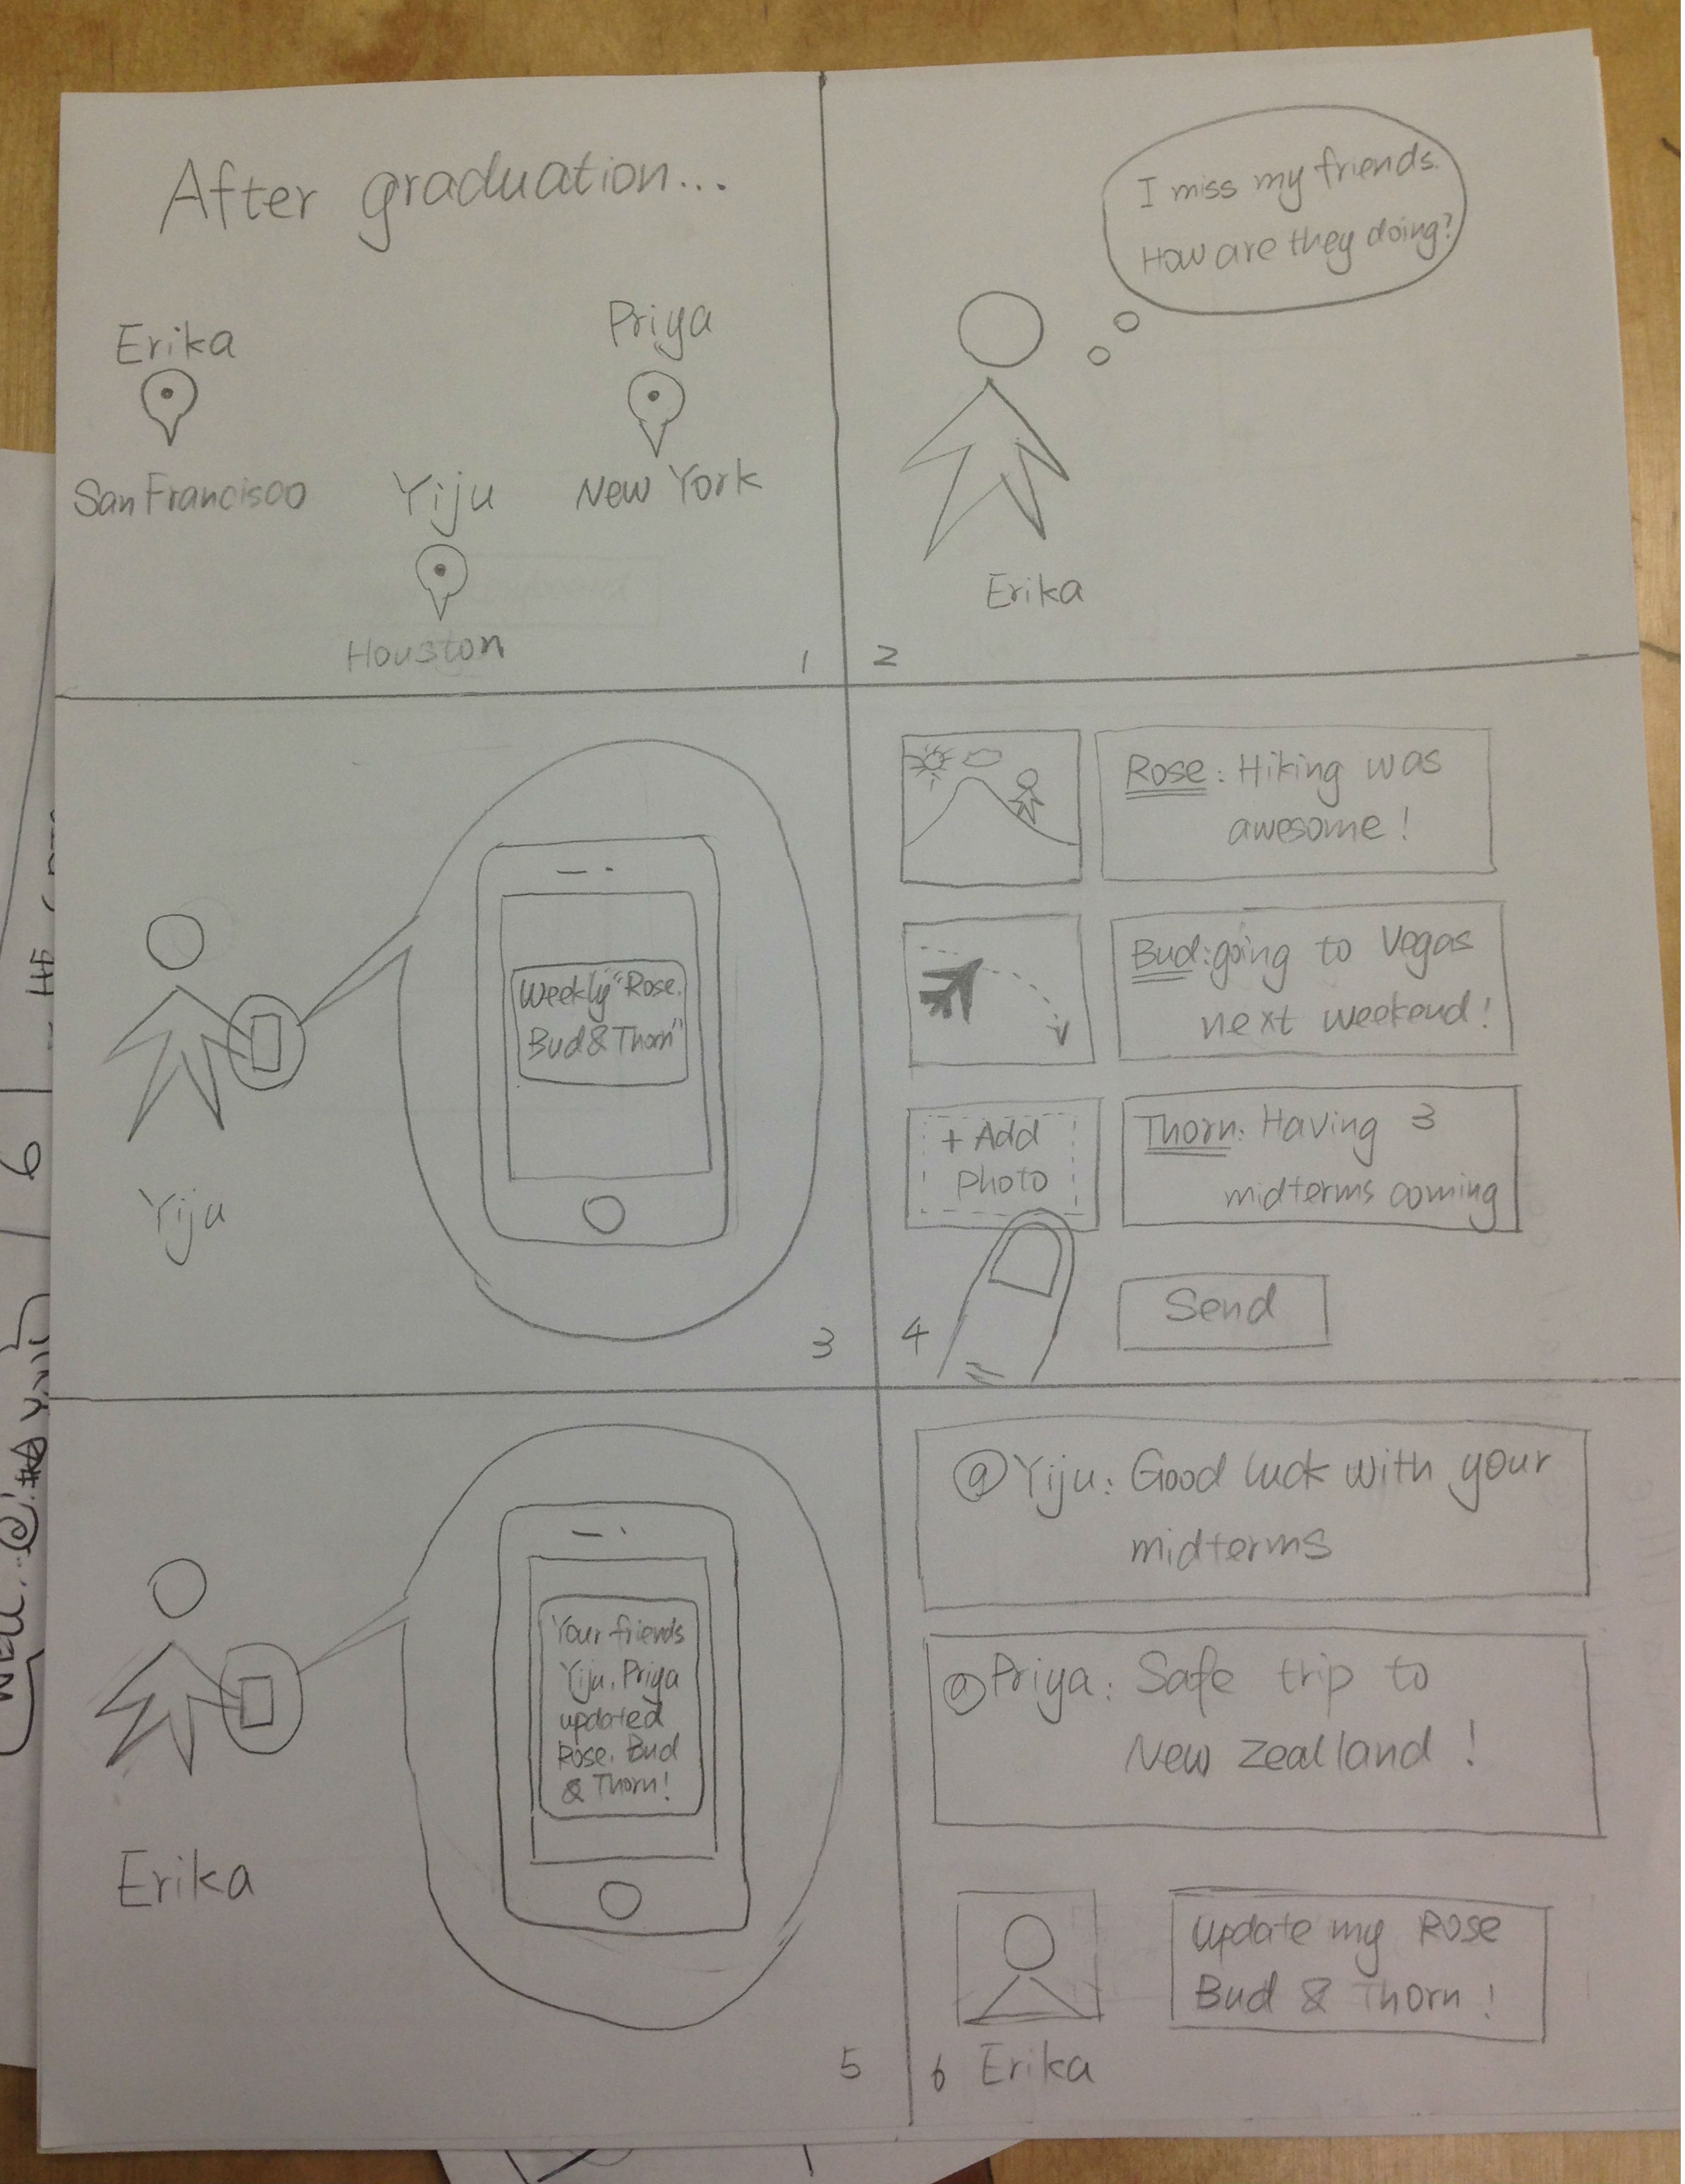 After graduation...
Erika
San Francisco
Priya
New York
Yiju
Houston
1
I miss my friends.
How are they doing?
Erika
2
Yiju
Weekly "Rose,
Bud & Thorn"
3
Rose: Hiking was
awesome!
Bud: going to Vegas
next weekend!
+ Add
photo
Thorn: Having 3
midterms coming
Send
4
Erika
Your friends
Yiju, Priya
updated
Rose, Bud
& Thorn!
5
@Yiju: Good luck with your
midterms
@Priya: Safe trip to
New Zealland!
Erika
Update my Rose
Bud & Thorn!
6
6